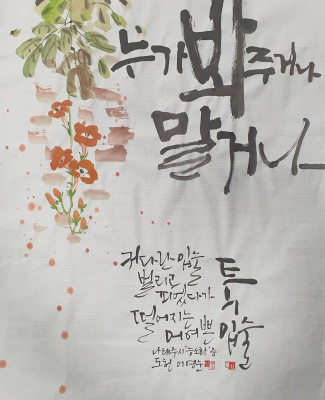 누가 봐주거나
말거나
커다란 입술
벌리고
피었다가
떨어지는
어여쁜
입술
나태주시 '능소화' 中
도헌